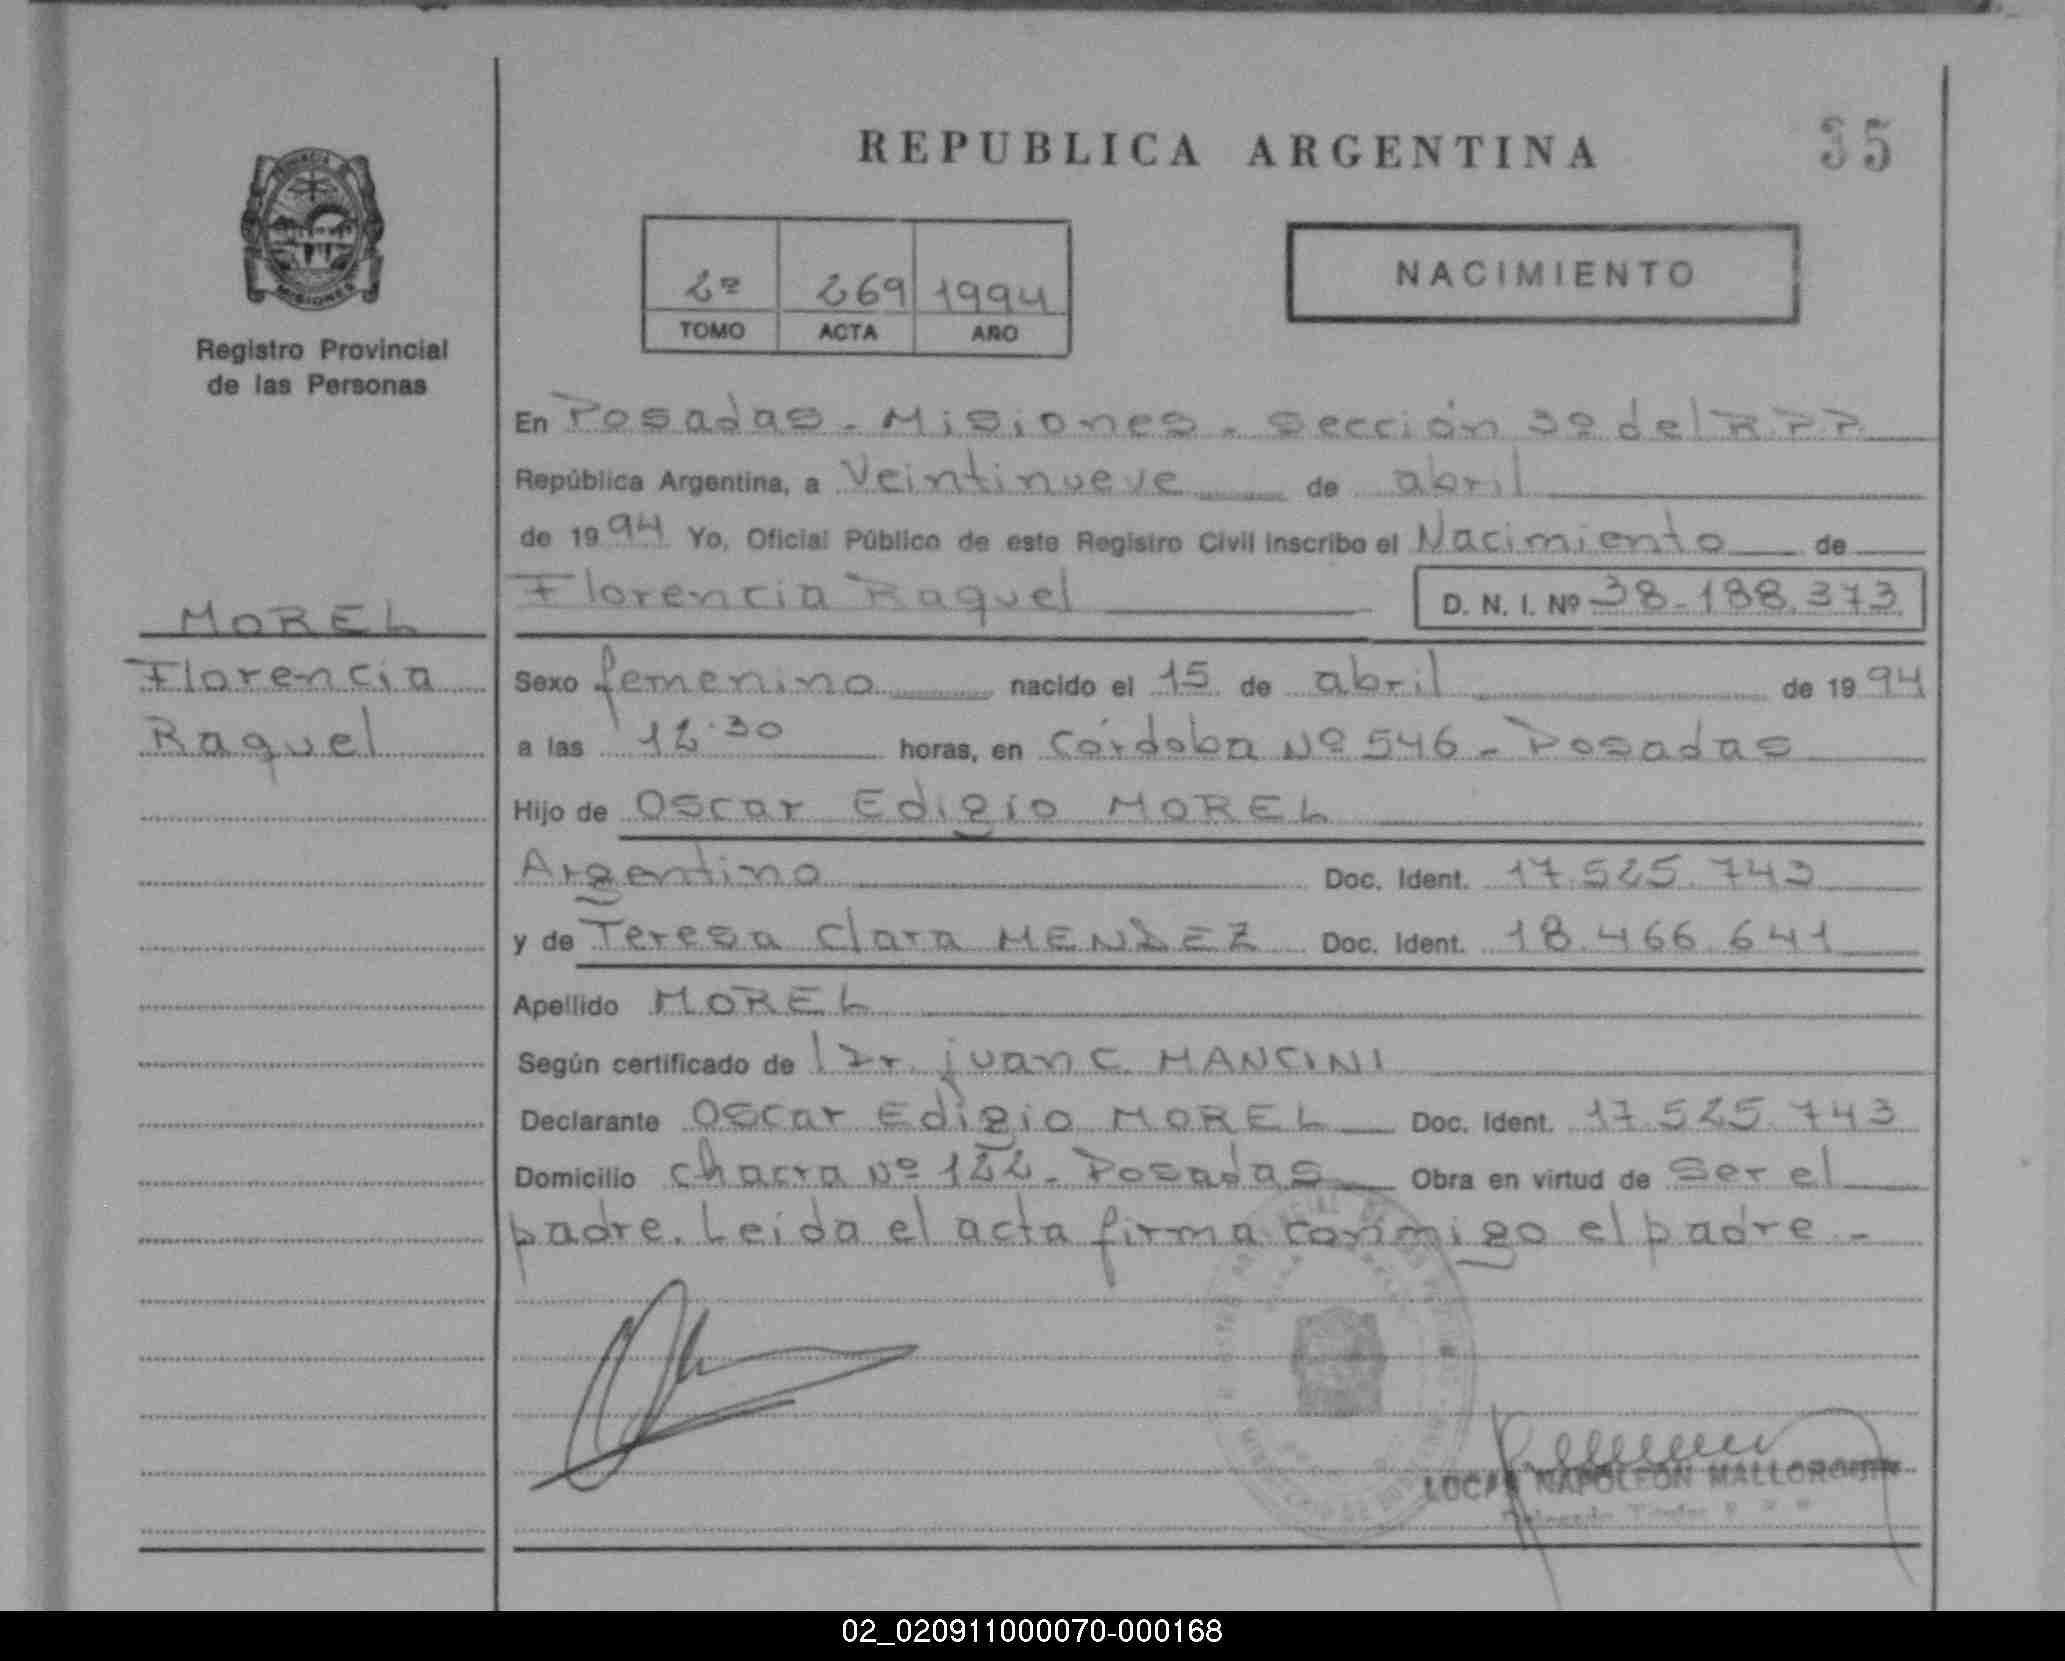 REPUBLICA ARGENTINA
35
PROVINCIA
MISIONES
Registro Provincial
de las Personas
2º 269 1994
TOMO ACTA AÑO
NACIMIENTO
En Posadas - Misiones - Sección 3º del R.P.P.
República Argentina, a Veintinueve de abril
de 1994 Yo, Oficial Público de este Registro Civil inscribo el Nacimiento de
Florencia Raquel D. N. I. Nº 38-188.373
MOREL
Florencia
Raquel
Sexo femenino nacido el 15 de abril de 1994
a las 12.30 horas, en Córdoba Nº 546 - Posadas
Hijo de Oscar Edigio MOREL
Argentino Doc. Ident. 17.525.743
y de Teresa Clara MENDEZ Doc. Ident. 18.466.641
Apellido MOREL
Según certificado de Dr. juan C. MANCINI
Declarante Oscar Edigio MOREL Doc. Ident. 17.525.743
Domicilio chacra Nº 122 - Posadas Obra en virtud de Ser el
padre. Leida el acta firma conmigo el padre -
LUCAS NAPOLEON MALLORQUIN
02_020911000070-000168